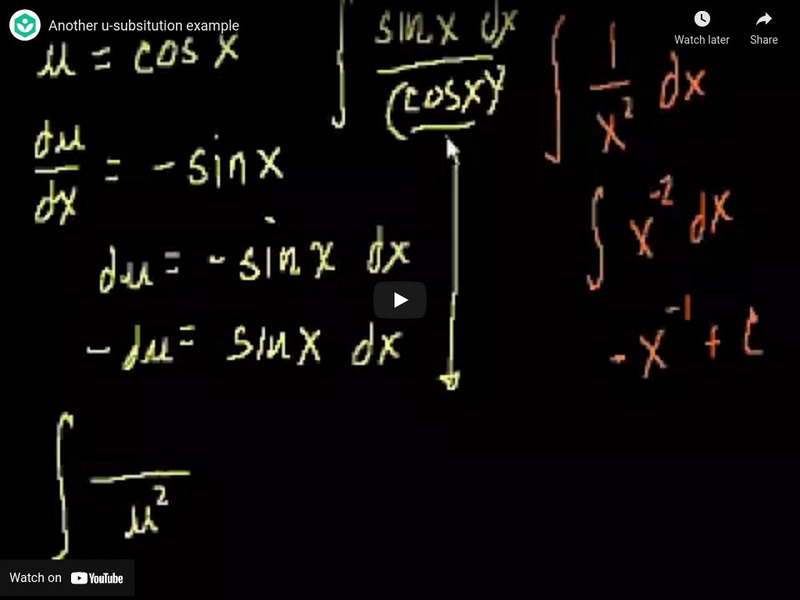 Another u-subsitution example
Watch later
Share
u = cos x
du/dx = - sin x
du = - sin x dx
- du = sin x dx
∫ —/u²
∫ sin x dx/(cos x)²
∫ 1/x² dx
∫ x⁻² dx
- x⁻¹ + C
Watch on YouTube